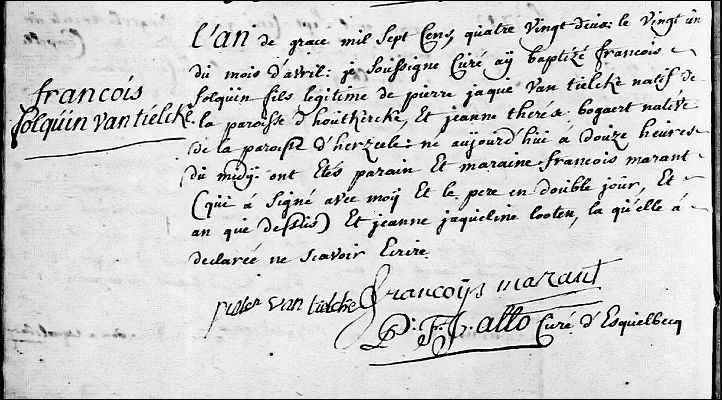 L'an de grace mil sept Cens quatre vingt deux: le vingt un
du mois d'avril: je soussigne Curé aÿ baptizé francois
francois
folquin vantielcke
folquin fils legitime de pierre jaque van tielcke natif de
la paroisse d'houtkercke, Et jeanne therese bogaert native
de la paroisse d'herzeele: ne aujourd'hui à douze heures
du midÿ: ont etés parain Et maraine francois marant
(qui à signé avec moÿ Et le pere en double jour, Et
an que dessus) Et jeanne jaqueline looten, la qu'elle á
declareé ne scavoir Ecrire.
pieter van tielcke francoÿs marant
P: F: J: allo Curé d'Esquelbecq